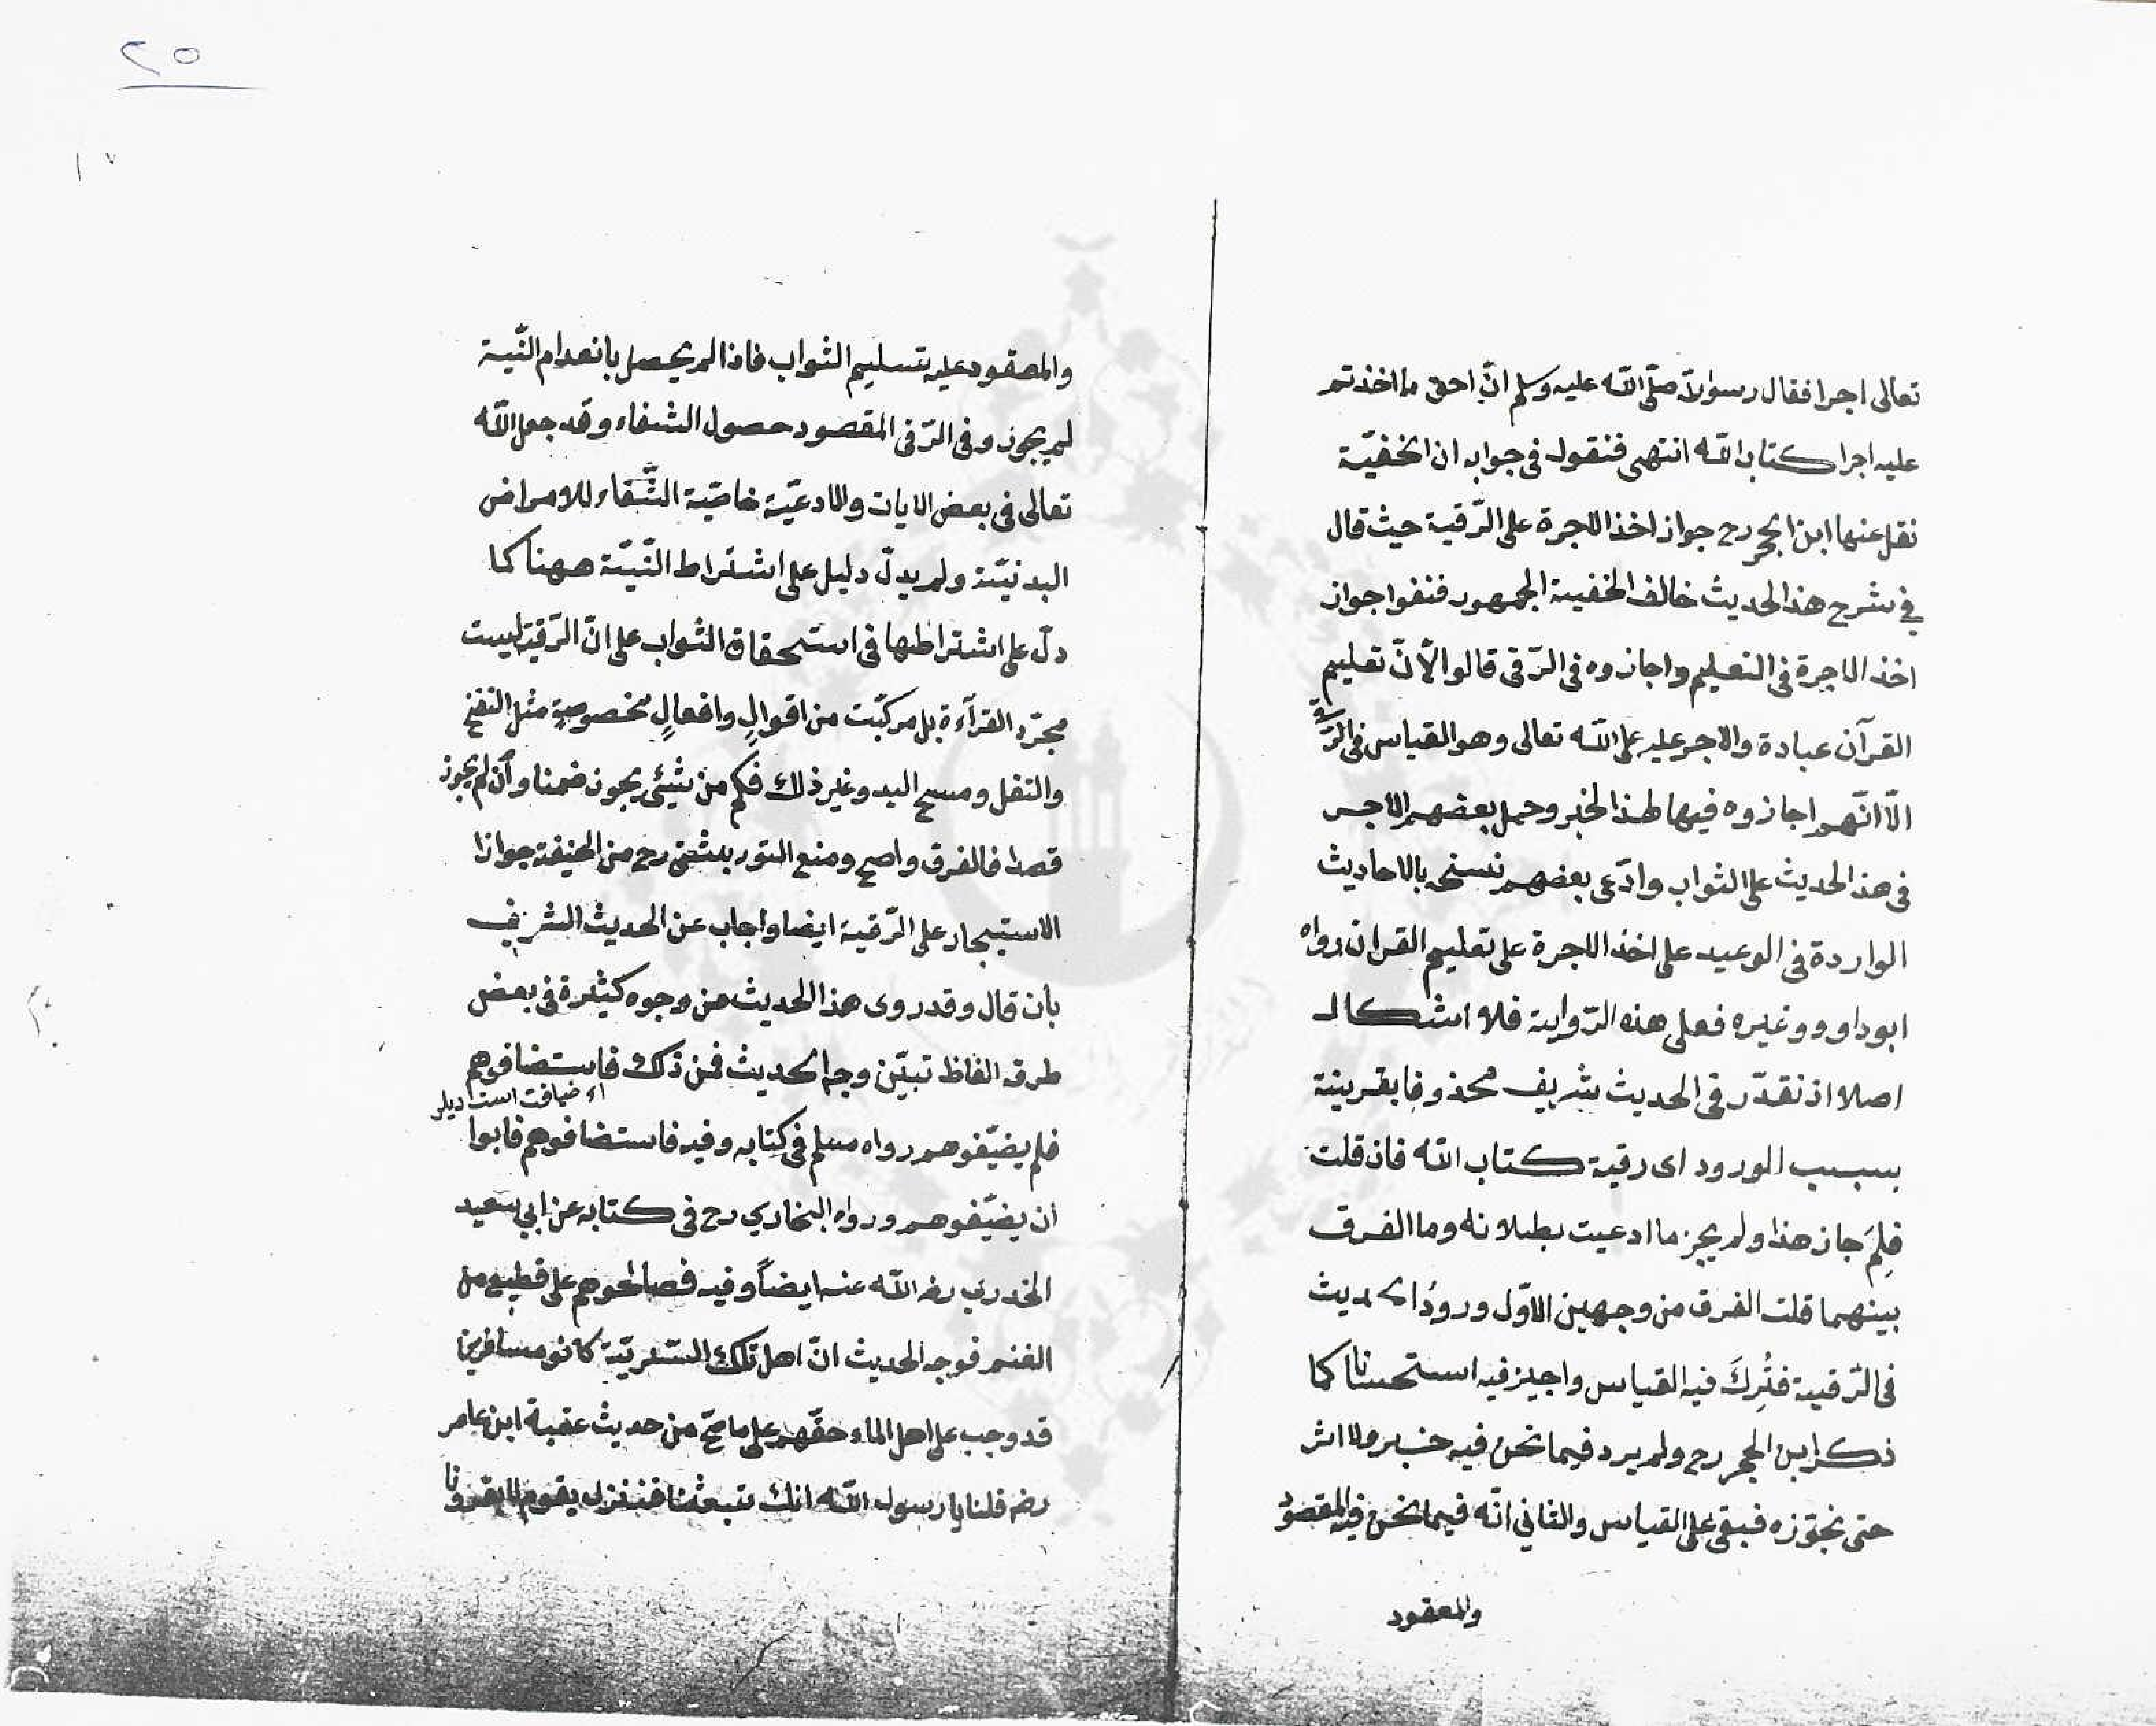 ٢٥
١٧
تعالى اجرا فقال رسول الله صلّى اللّه عليه وسلم انّ احق ما اخذتم
عليه اجرا كتاب اللّه انتهى فنقول فى جوابه ان الحنفيّة
نقل عنها ابن الحجر رح جواز اخذ الاجرة على الرّقية حيث قال
في شرح هذا الحديث خالف الحنفية الجمهور فنفوا جواز
اخذ الاجرة فى التعليم واجازوه فى الرّقى قالوا لأنّ تعليم
القرآن عبادة والاجر عليه على اللّه تعالى وهو القياس فى الرّقية
الاّ انّهم اجازوه فيها لهذا الخبر وحمل بعضهم الاجر
فى هذا الحديث على الثواب وادّعى بعضهم نسخه بالاحاديث
الواردة فى الوعيد على اخذ الاجرة على تعليم القران رواه
ابوداوود وغيره فعلى هذه الرّواية فلا اشكال
اصلا اذ نقدّر فى الحديث شريف محذوفا بقرينة
بسبب الورود اى رقية كتاب اللّه فان قلت
فلِمَ جاز هذا ولم يجز ما ادعيت بطلانه وما الفرق
بينهما قلت الفرق من وجهين الاوّل ورودُ الحديث
فى الرّقية فتُرِكَ فيه القياس واجيز فيه استحسانا كما
ذكر ابن الحجر رح ولم يرد فيما نحن فيه خبر ولا اثر
حتى نجوّزه فبقى على القياس والثاني انّه فيما نحن فيه المقصود
والمعقود
والمعقود عليه تسليم الثواب فاذا لم يحصل بانعدام النّية
لم يجوز وفى الرّقى المقصود حصول الشفاء وقد جعل اللّه
تعالى فى بعض الايات والادعيّة خاصّية الشّفاء للامراض
البدنيّة ولم يدلّ دليل على اشتراط النّيّة ههنا كما
دلّ على اشتراطها فى استحقاة الثواب على انّ الرّقية ليست
مجرّد القرآءة بل مركبّت من اقوالٍ وافعالٍ مخصوصةٍ مثل النفخ
والتفل ومسح اليد وغير ذلك فكم من شيئى يجوز ضمنا وان لم يجوز
قصدا فالفرق واضح ومنع التوربشتى رح من الحنيفة جوازا
الاستيجار على الرّقية ايضا واجاب عن الحديث الشريف
بأن قال وقد روى هذا الحديث من وجوه كثيرة فى بعض
طرق الفاظ تبيّن وجه الحديث فمن ذلك فاستضافوهم
اى ضيافت استديلر
فلم يضيّفوهم رواه مسلم فى كتابه وفيه فاستضافوهم فابوا
ان يضيّفوهم ورواه البخاري رح فى كتابه عن ابي سعيد
الخدري رضه اللّه عنه ايضاً وفيه فصالحوهم على قطيع من
الغنم فوجه الحديث انّ اهل تلك السّريّة كانو مسافرين
قد وجب على اهل الماء حقّهم على ما صحّ من حديث عقبة ابن عامر
رضه قلنا يا رسول اللّه انك تبعثنا فننزل بقوم لا يقرونا